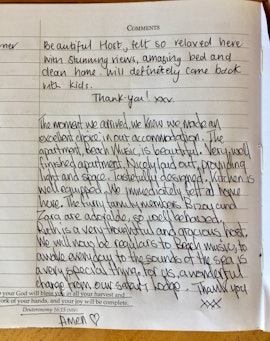 COMMENTS
ner
Beautiful Host, felt so relaxed here
with stunning views, amazing bed and
clean home. Will definitely come back
with kids.
Thank you! xxx.
The moment we arrived, we knew we made an
excellent choice in our accommodation. The
apartment, Beach Music, is beautiful. Very well
finished apartment. Nicely laid out, providing
light and space. Tastefully designed. Kitchen is
well equipped. We immediately felt at home
here. The furry family members Bizzy and
Zara are adorable, so well behaved.
Ruth is a very thoughtful and gracious host.
We will now be regulars to Beach Music, to
awake everyday to the sounds of the sea is
a very special thing for us, a wonderful
change from our safari lodge. Thank you
xxx
your God will bless you in all your harvest and
work of your hands, and your joy will be complete.
Deuteronomy 16:15 (NIV)
Amen ♡